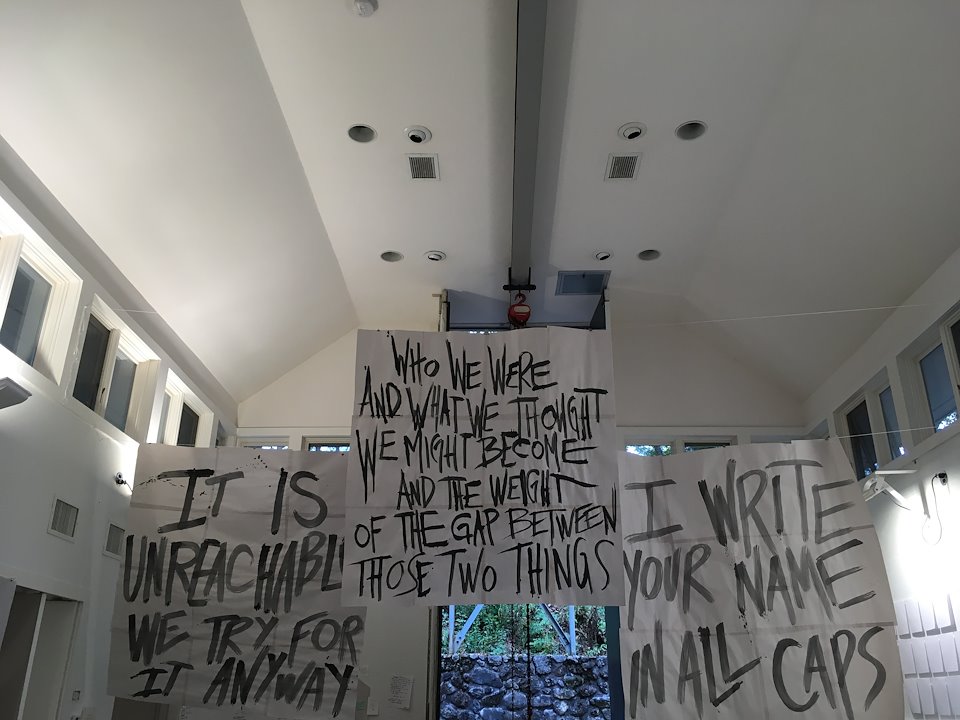 IT IS
UNREACHABL
WE TRY FOR
IT ANYWAY
WHO WE WERE
AND WHAT WE THOUGHT
WE MIGHT BECOME
AND THE WEIGHT
OF THE GAP BETWEEN
THOSE TWO THINGS
I WRITE
YOUR NAME
IN ALL CAPS